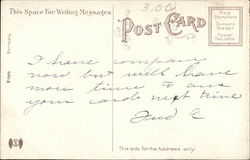 3.00
This Space For Writing Messages
POST CARD
Place
Stamp Here
Domestic
One cent
Foreign
Two cents
Germany
I have company
now but will have
more time to ans
your cards next time
This side for the Address only.